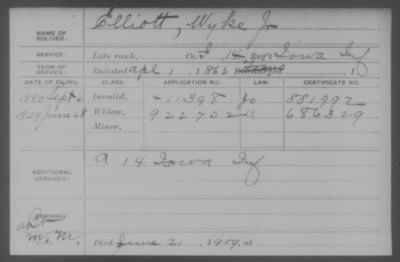 NAME OF SOLDIER: Elliott, Wyke Jo
SERVICE: Late rank, Co. I, 14 Reg't Iowa Inf
TERM OF SERVICE: Enlisted Apl 1, 1863
DATE OF FILING. CLASS. APPLICATION NO. LAW. CERTIFICATE NO.
1880 Sept Invalid, 411398 881992
1909 June 28 Widow, 922752 686329
Minor,
ADDITIONAL SERVICES: A 14 Iowa Inf
REMARKS:
M. M. Died June 21, 1909, at